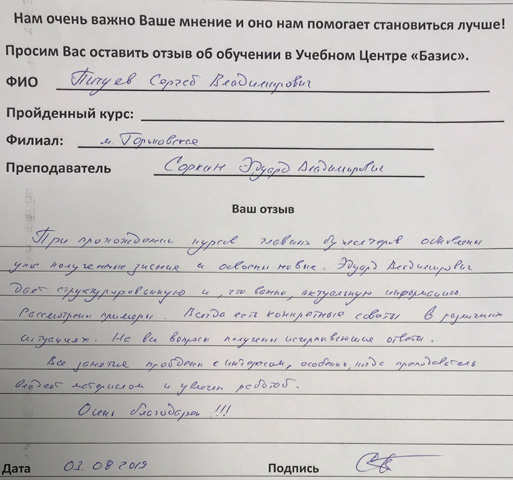 Нам очень важно Ваше мнение и оно нам помогает становиться лучше!
Просим Вас оставить отзыв об обучении в Учебном Центре «Базис».
ФИО Сергей Владимирович
Пройденный курс:
Филиал: м. Горьковская
Преподаватель Соркин Эдуард Владимирович
Ваш отзыв
При прохождении курсов главных бухгалтеров освежены
уже полученные знания и освоены новые. Эдуард Владимирович
дает структурированную и, что важно, актуальную информацию.
Рассмотрены примеры. Всегда есть конкретные советы в различных
ситуациях. На все вопросы получены исчерпывающие ответы.
Все занятия пройдены с интересом, особенно, когда преподаватель
владеет материалом и увлечен работой.
Очень благодарен!!!
Дата 03.08.2019 Подпись